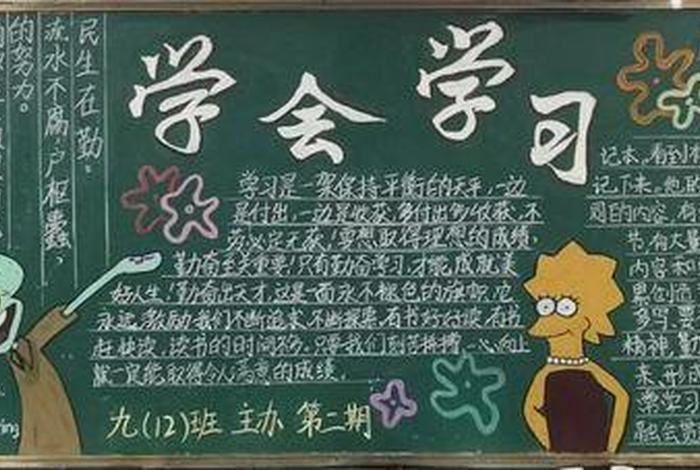 学会学习
民生在勤。
流水不腐,户枢不蠹、
的努力。
学习是一架保持平衡的天平,一边
是付出,一边是收获,多付出多收获,不
劳必定无获!要想取得理想的成绩,
勤奋至关重要!只有勤奋学习,才能成就美
好人生!勤奋出天才,这是一面永不褪色的旗帜,它
永远激励我们不断追求,不断探索。有书好好读,有书
赶快读,读书的时间不多。只要我们刻苦拼搏,一心向上
就一定能取得令人满意的成绩。
九(12)班 主办 第二期
记本,看到
记下来,
的内容,
节,有大
内容和
累创造
多写
精神,勤
来,开
累学习
融会贯
ing